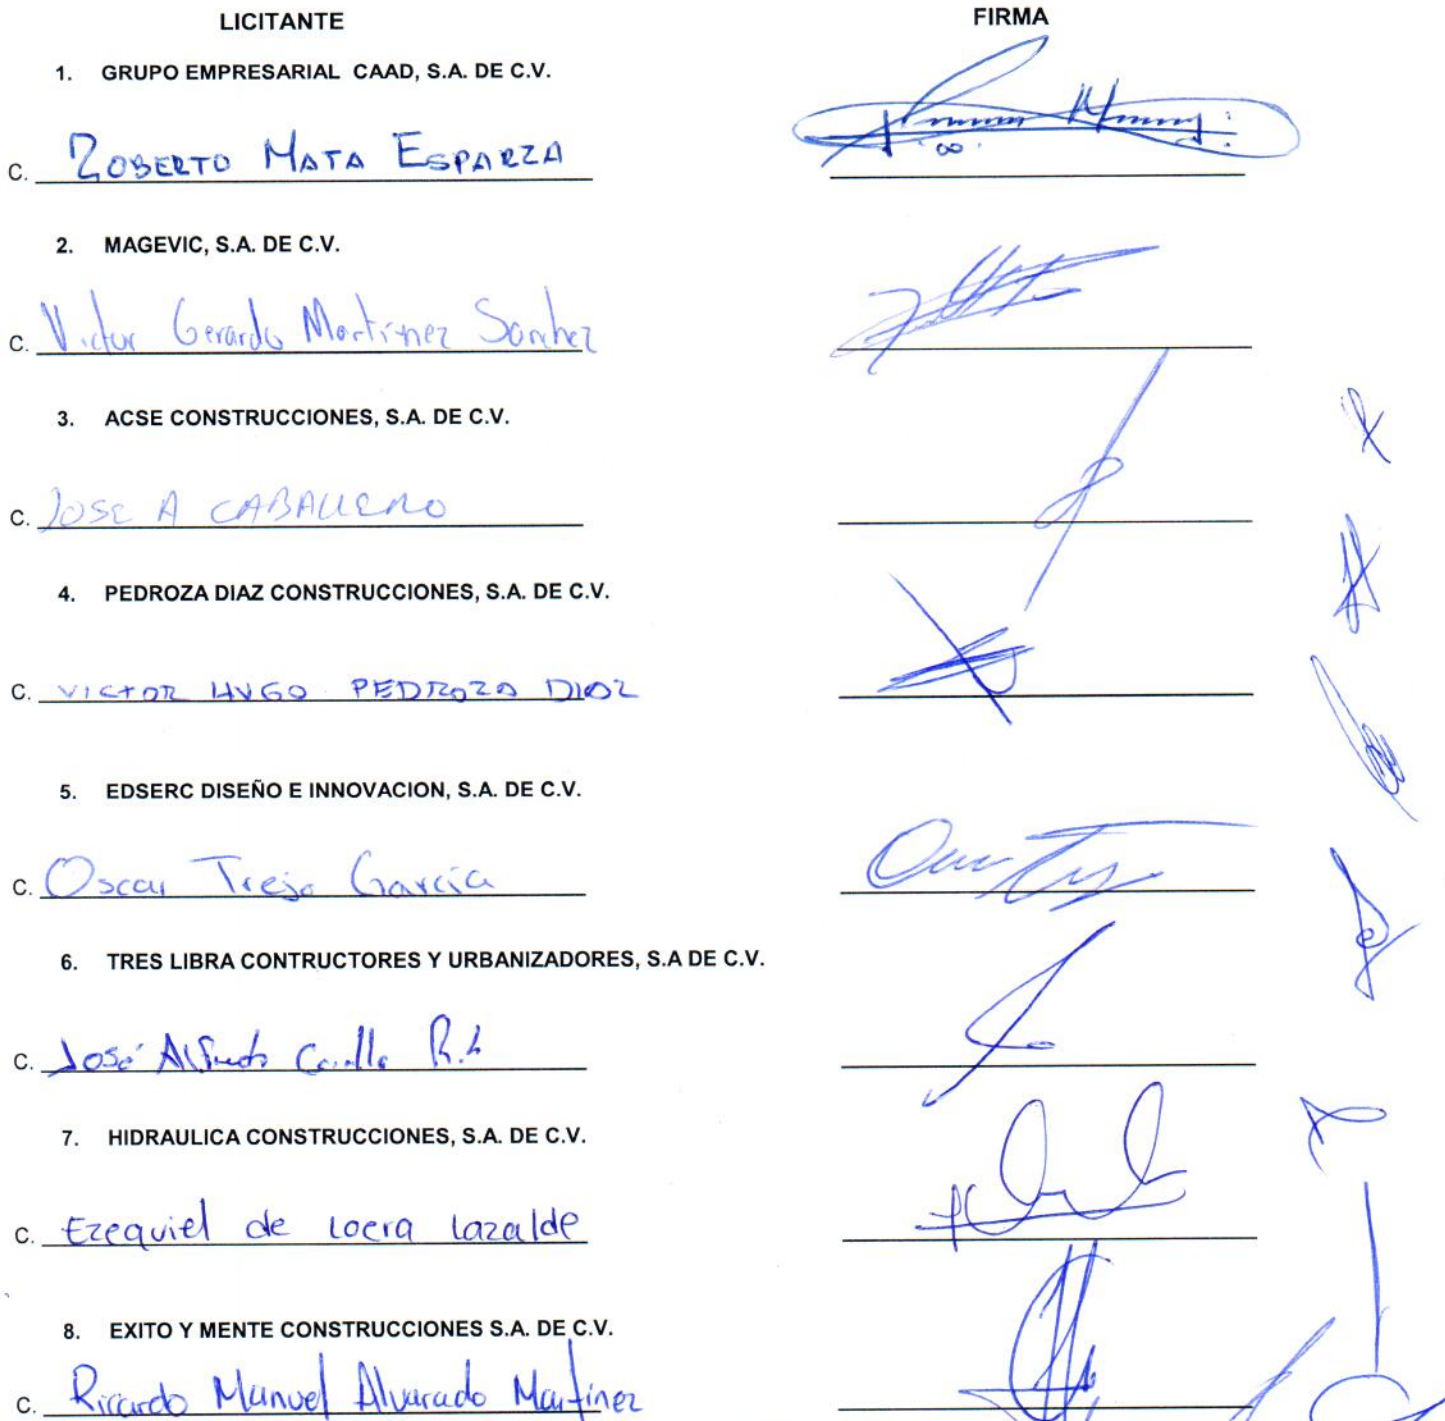 LICITANTE FIRMA
1. GRUPO EMPRESARIAL CAAD, S.A. DE C.V.
C. ROBERTO MATA ESPARZA
2. MAGEVIC, S.A. DE C.V.
C. Victor Gerardo Martinez Sanchez
3. ACSE CONSTRUCCIONES, S.A. DE C.V.
C. JOSE A CABALLERO
4. PEDROZA DIAZ CONSTRUCCIONES, S.A. DE C.V.
C. VICTOR HUGO PEDROZA DIAZ
5. EDSERC DISEÑO E INNOVACION, S.A. DE C.V.
C. Oscar Trejo García
6. TRES LIBRA CONTRUCTORES Y URBANIZADORES, S.A DE C.V.
C. José Alfredo
7. HIDRAULICA CONSTRUCCIONES, S.A. DE C.V.
C. Ezequiel de Loera Lazalde
8. EXITO Y MENTE CONSTRUCCIONES S.A. DE C.V.
C. Ricardo Manuel Alvarado Martinez